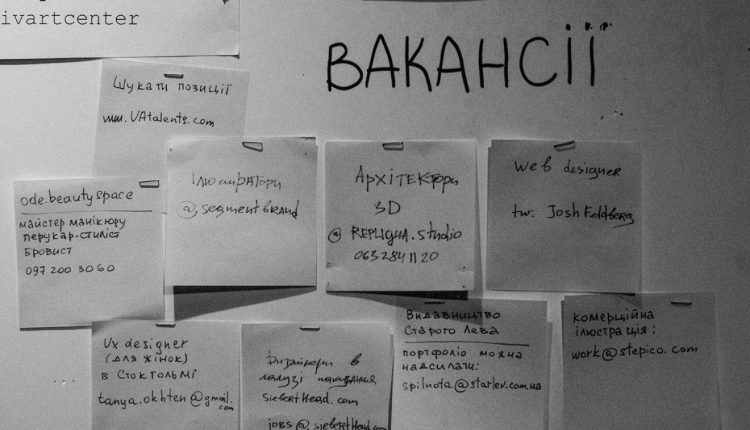 ivartcenter
ВАКАНСІЇ
Шукати позиції
www.UAtalents.com
ode.beautyspace
майстер манікюру
перукар-стиліст
бровист
097 200 30 60
Ілюстратори
@segmentbrand
Архітектори
3D
@ REPLIQUA.studio
063 284 11 20
web designer
tw: Josh Feldberg
Ux designer
(для жінок)
в Стокгольмі
tanya.okhten@gmail.
com
Дизайнери в
галузі пакування
SiebertHead.com
jobs@siebertHead.com
Видавництво
Старого Лева
портфоліо можна
надсилати:
spilnota@starlev.com.ua
комерційна
ілюстрація:
work@stepico.com